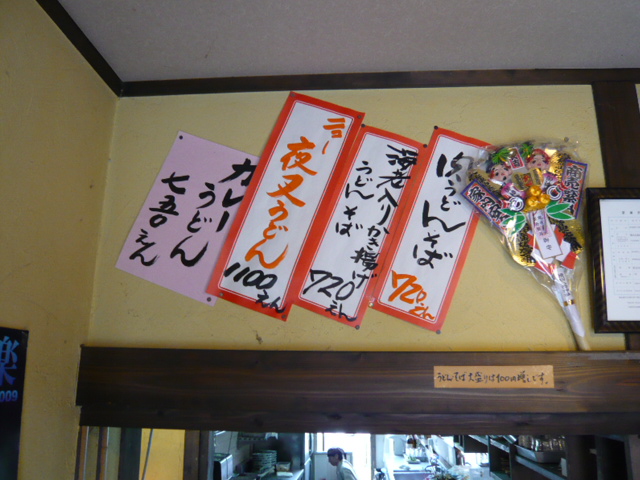 カレー
うどん
七五〇えん
ニュー
夜叉うどん
1100えん
海老入りかき揚げ
うどんそば
720えん
肉うどんそば
720えん
うどんそば大盛りは100円増しです。
楽
2009